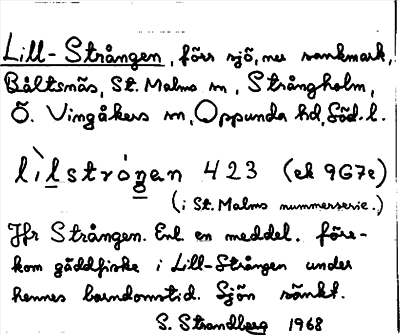 Lill-Strången, förs sjö, nu sankmark,
Båltsnäs, St. Malms sn, Strångholm,
Ö. Vingåkers sn, Oppunda hd, Söd. l.
lìlstróŋan 423 (ek 9G7e)
(i St. Malms nummerserie.)
Jfr Strången. Enl en meddel. före-
kom gäddfiske i Lill-Strången under
hennes barndomstid. Sjön sänkt.
S. Strandberg 1968